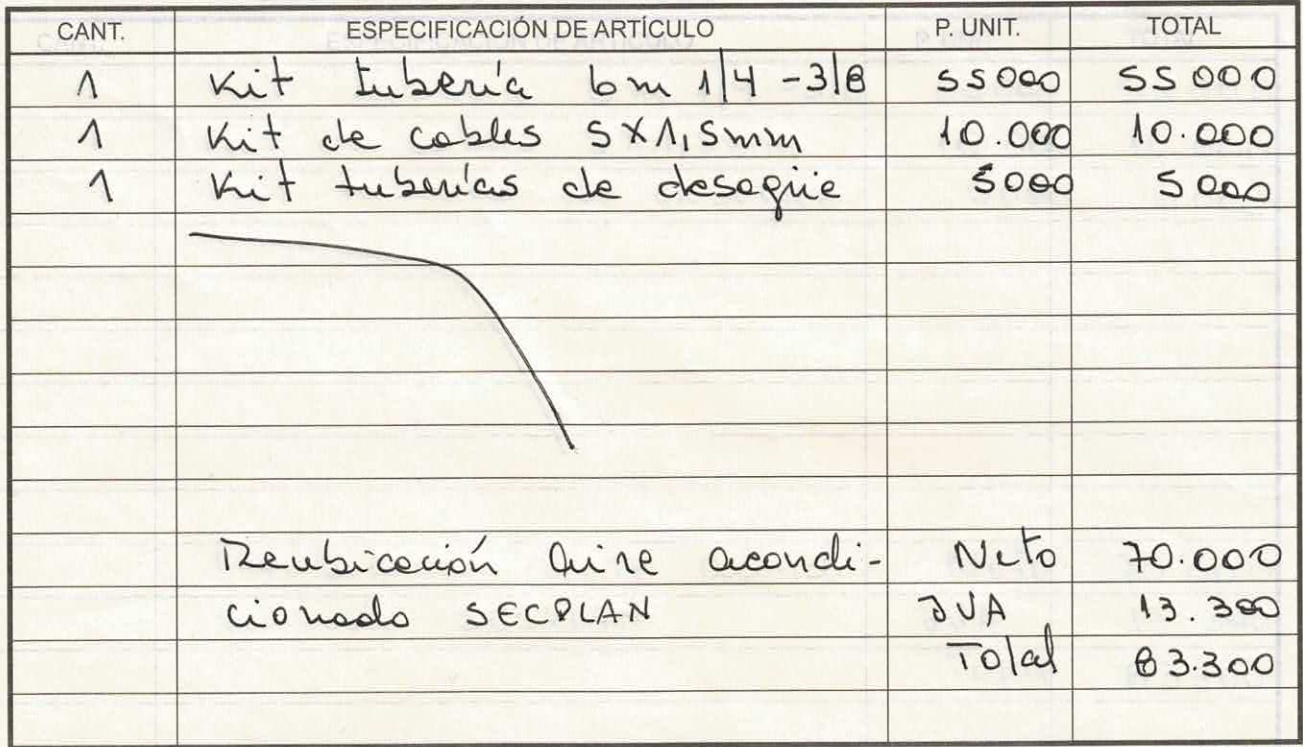 CANT. ESPECIFICACIÓN DE ARTÍCULO P. UNIT. TOTAL
1 Kit tubería 6m 1/4 - 3/8 55000 55000
1 Kit de cables 5X1,5mm 10.000 10.000
1 Kit tuberías de desagüe 5000 5000
Reubicación Aire acondi- Neto 70.000
cionado SECPLAN IVA 13.300
Total 83.300